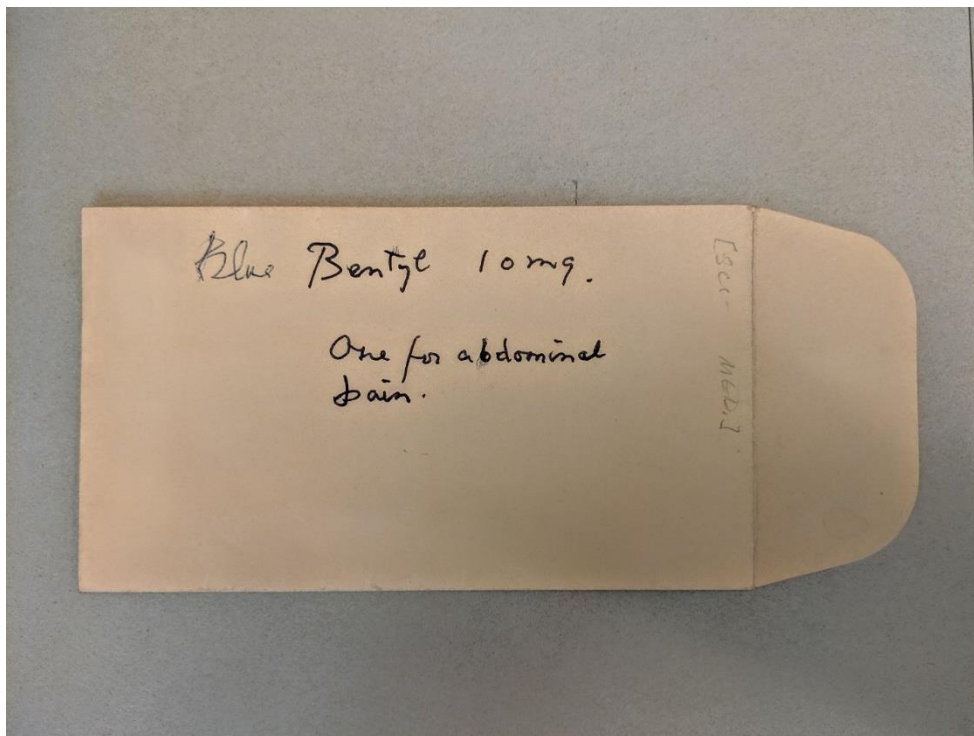 Blue Bentyl 10 mg.
One for abdominal
pain.